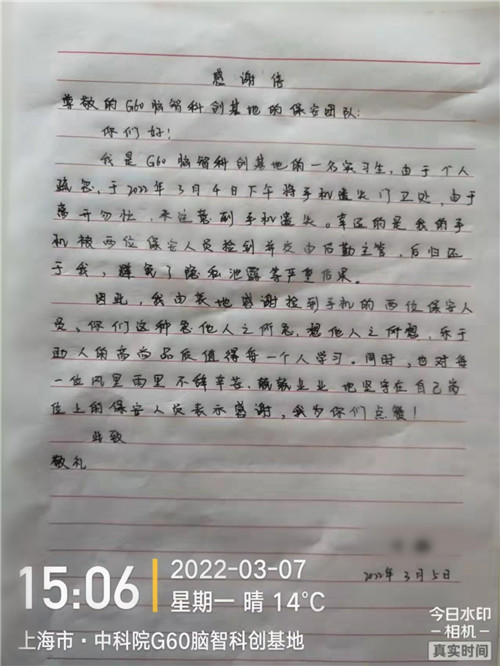 感谢信
尊敬的G60脑智科创基地的保安团队:
你们好!
我是G60脑智科创基地的一名实习生,由于个人
疏忽,于2022年3月4日下午将手机遗失门卫处,由于
离开匆忙,未注意到手机遗失。幸运的是我的手
机被两位保安人员捡到并交由后勤主管,后归还
于我,避免了隐私泄露等严重后果。
因此,我由衷地感谢捡到手机的两位保安人
员,你们这种急他人之所急,想他人之所想,乐于
助人的高尚品质值得每一个人学习。同时,也对每
一位风里雨里不辞辛苦、兢兢业业地坚守在自己岗
位上的保安人员表示感谢,我为你们点赞!
此致
敬礼
2022年3月5日
15:06
2022-03-07
星期一 晴 14℃
上海市·中科院G60脑智科创基地
今日水印
相机
真实时间